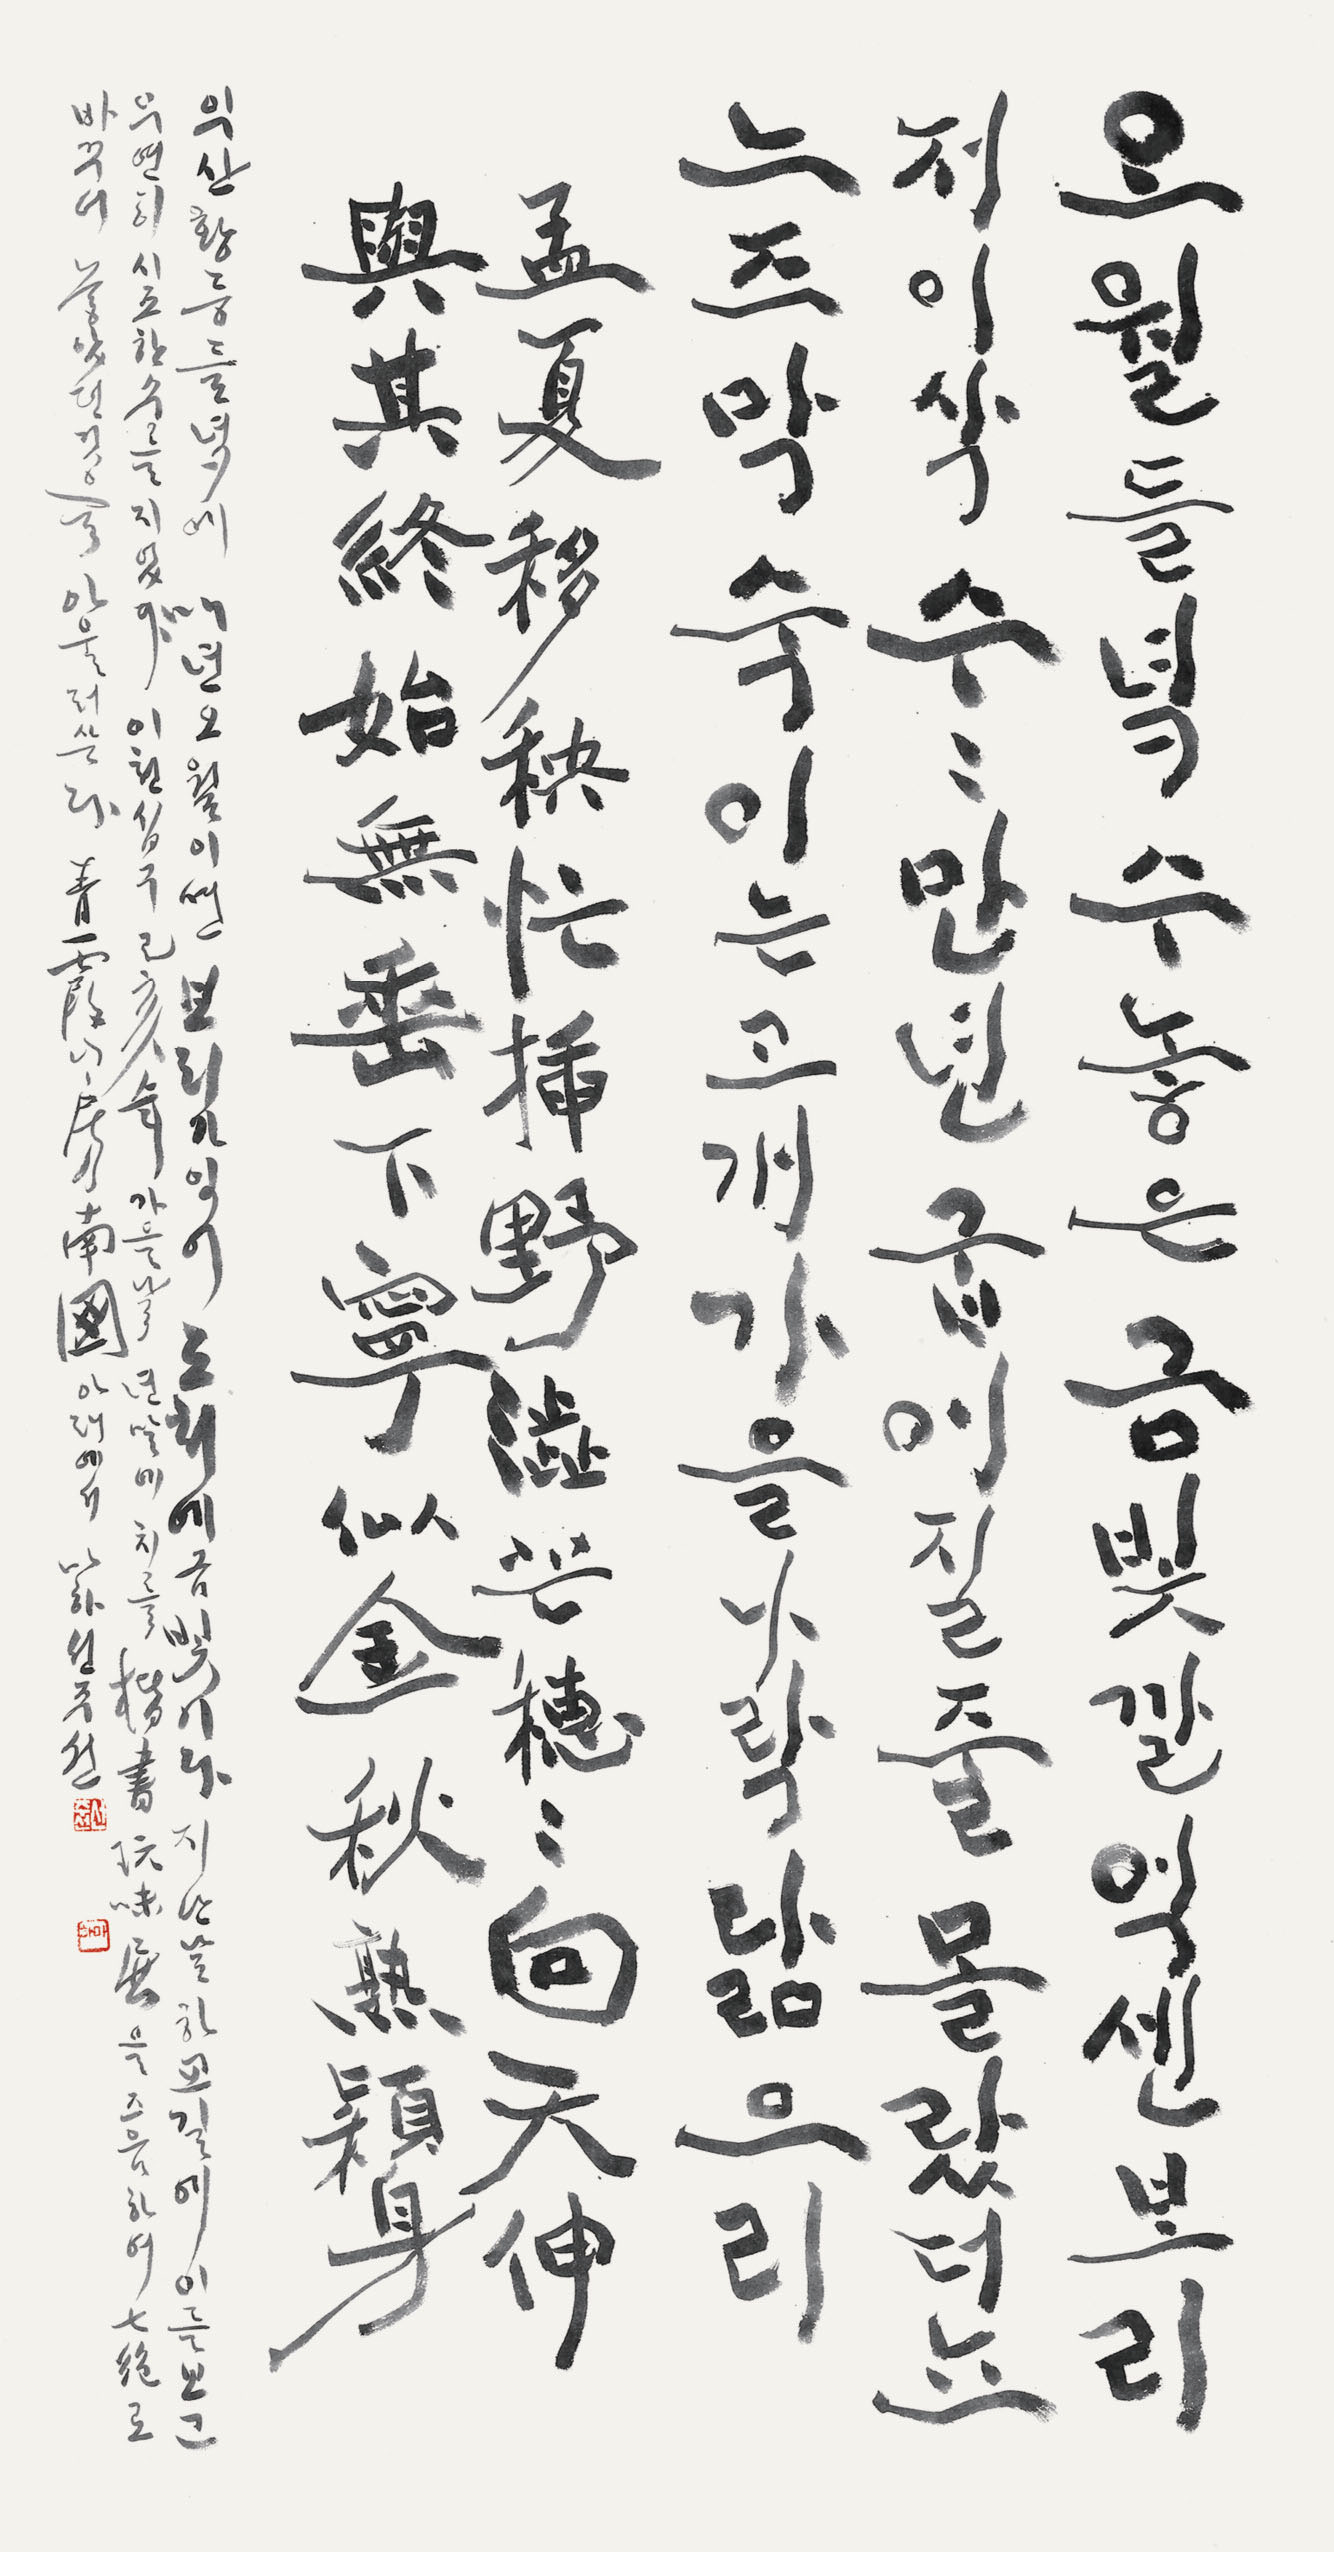 오월들녘 수놓은 금빛깔 억센보리
저이삭 수〻만년 굽이질줄 몰랐더뇨
느즈막 숙이는고개 가을나락 닮으리
孟夏移秧忙揷野澁芒穗〻向天伸
與其終始無垂下寧似金秋熟穎身
익산황등들녘에 매년오월이면 보리가익어 도처에금빛이다 지난봄 하교길에 이를보고
우연히 시조한수를 지었 이천십구己亥年 가을날 년말에 치를 楷書 玩味展을 준하여 七絶로
바꾸어 아울러쓰다 靑霞山房南國 아래에서